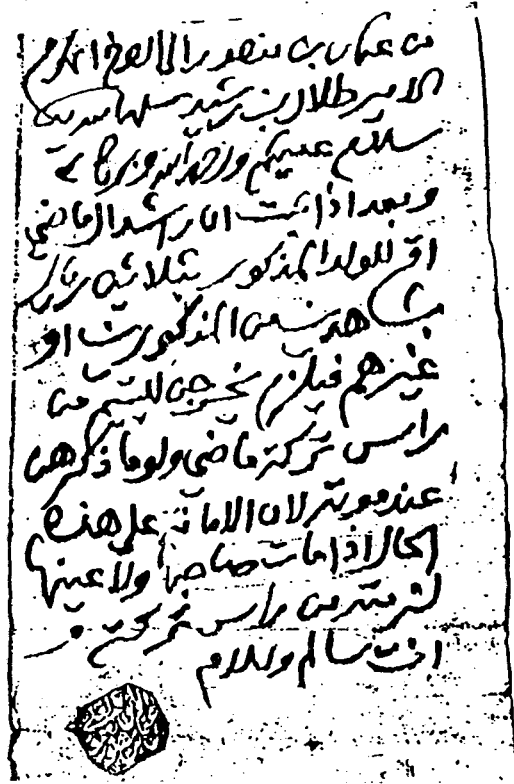 من عثمان بن منصور الى الاخ المكرم
الامير طلال بن رشيد سلمه الله
سلام عليكم ورحمة الله وبركاته
وبعد اذا ثبت ان راشد الماضي
اقر للولد المذكور بثلاثين ريال
بشاهدين من المذكورين او
غيرهم فيلزم تخرج لليتيم من
راس تركة ماضي ولو ما ذكرهن
عند موته لان الامانة على هذه
الحال اذا مات صاحبها ولا عينها
من راس تركته
انت سالم والسلام